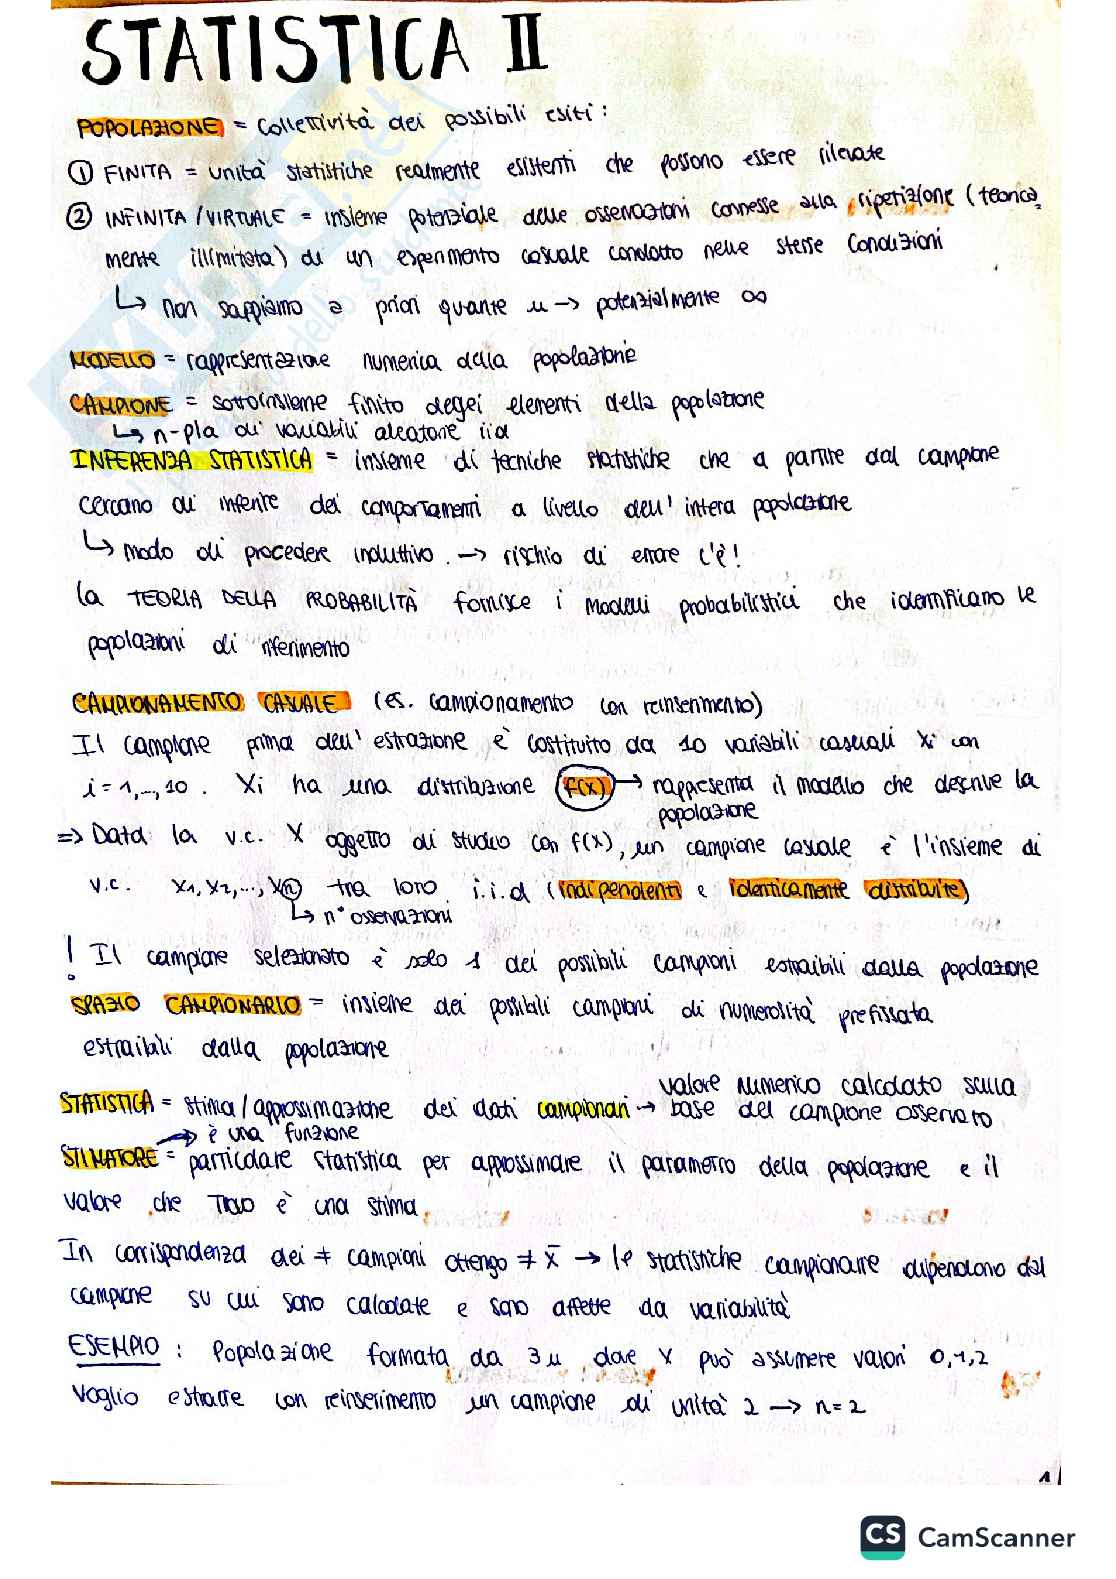 STATISTICA II
POPOLAZIONE = collettività dei possibili esiti:
① FINITA = unità statistiche realmente esistenti che possono essere rilevate
② INFINITA / VIRTUALE = insieme potenziale delle osservazioni connesse alla ripetizione (teorica
mente illimitata) di un esperimento casuale condotto nelle stesse condizioni
↳ non sappiamo a priori quante u → potenzialmente ∞
MODELLO = rappresentazione numerica della popolazione
CAMPIONE = sottoinsieme finito degli elementi della popolazione
↳ n-pla di variabili aleatorie iid
INFERENZA STATISTICA = insieme di tecniche statistiche che a partire dal campione
cercano di inferire dei comportamenti a livello dell'intera popolazione
↳ modo di procedere induttivo. → rischio di errore c'è!
la TEORIA DELLA PROBABILITÀ fornisce i modelli probabilistici che identificano le
popolazioni di riferimento
CAMPIONAMENTO CASUALE (es. campionamento con reinserimento)
Il campione prima dell'estrazione è costituito da 10 variabili casuali Xi con
i = 1,..., 10. Xi ha una distribuzione f(x) → rappresenta il modello che descrive la
popolazione
=> Data la v.c. X oggetto di studio con f(x), un campione casuale è l'insieme di
v.c. X1, X2,..., Xn tra loro i.i.d (indipendenti e identicamente distribuite)
↳ n° osservazioni
! Il campione selezionato è solo 1 dei possibili campioni estraibili dalla popolazione
SPAZIO CAMPIONARIO = insieme dei possibili campioni di numerosità prefissata
estraibili dalla popolazione
STATISTICA = stima / approssimazione dei dati campionari → valore numerico calcolato sulla
base del campione osservato
→ è una funzione
STIMATORE = particolare statistica per approssimare il parametro della popolazione e il
valore che trovo è una stima.
In corrispondenza dei ≠ campioni ottengo ≠ x̄ → le statistiche campionarie dipendono dal
campione su cui sono calcolate e sono affette da variabilità
ESEMPIO: Popolazione formata da 3 u dove X può assumere valori 0,1,2
Voglio estrarre con reinserimento un campione di unità 2 → n=2
1
CS CamScanner